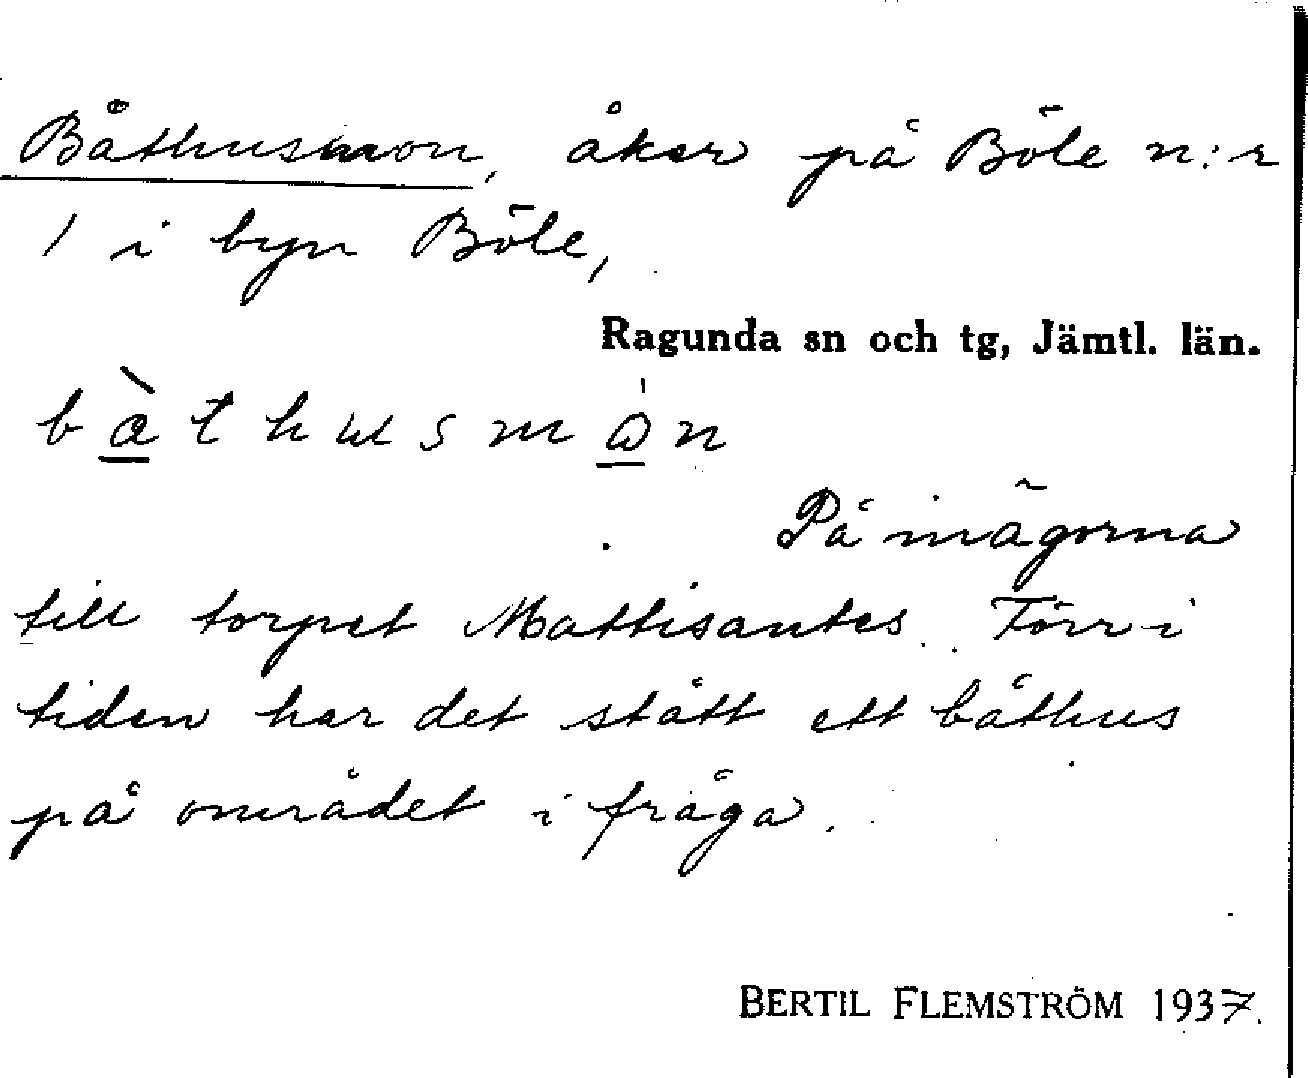 Båthusmon, åker på Böle n:r
1 i byn Böle,
Ragunda sn och tg, Jämtl. län.
bàthusmòn
På inägorna
till torpet Mattisantes. Förr i
tiden har det stått ett båthus
på området i fråga.
BERTIL FLEMSTRÖM 1937.